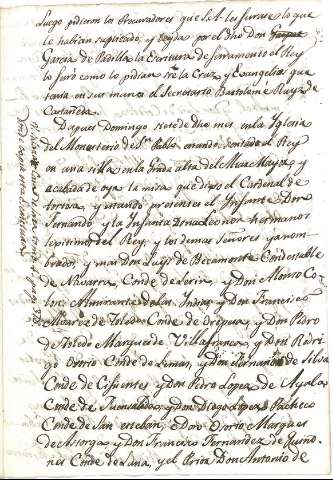 Luego pidieron los Procuradores que S.A. les jurase lo que
le habian suplicado, y leyda por el dho Don
Garcia de Padilla la Escritura de juramento el Rey
lo juró como lo pidian sre la Cruz, y Evangelios que
tenia en sus manos el Secretario Bartolome Ruyz de
Castañeda.
Dspues Domingo siete de dho mes en la Iglesia
del Monasterio de Sn. Pablo estando sentado el Rey
en una silla en la grada alta del Altar Mayor, y
acabada de oyr la misa que dixo el Cardenal de
tortosa, y estando presentes el Infante Don
Fernando, y la Infanta Dona Leonor hermanos
legitimos del Rey, y los demas Señores ya nom-
brados, y mas Don Luys de Beamonte Condestable
de Navarra, Conde de Lerin, y Don Alonso Co-
lon Almirante de las Indias, y Don Francisco
Alvarez de Toledo Conde de Oropesa, y Don Pedro
de Toledo Marques de Villafranca, y Don Rodri
go Osorio Conde de Lemos, y Don Fernando de Silva
Conde de Cifuentes y Don Pedro Lopez de Ayala
Conde de Fuensalida, y Don Diego Lopez Pacheco
Conde de San esteban, Don Osorio Marques
de Astorga y Don Francisco Fernandez de Quiño-
nes Conde de Luna, y el Prior Don Antonio de